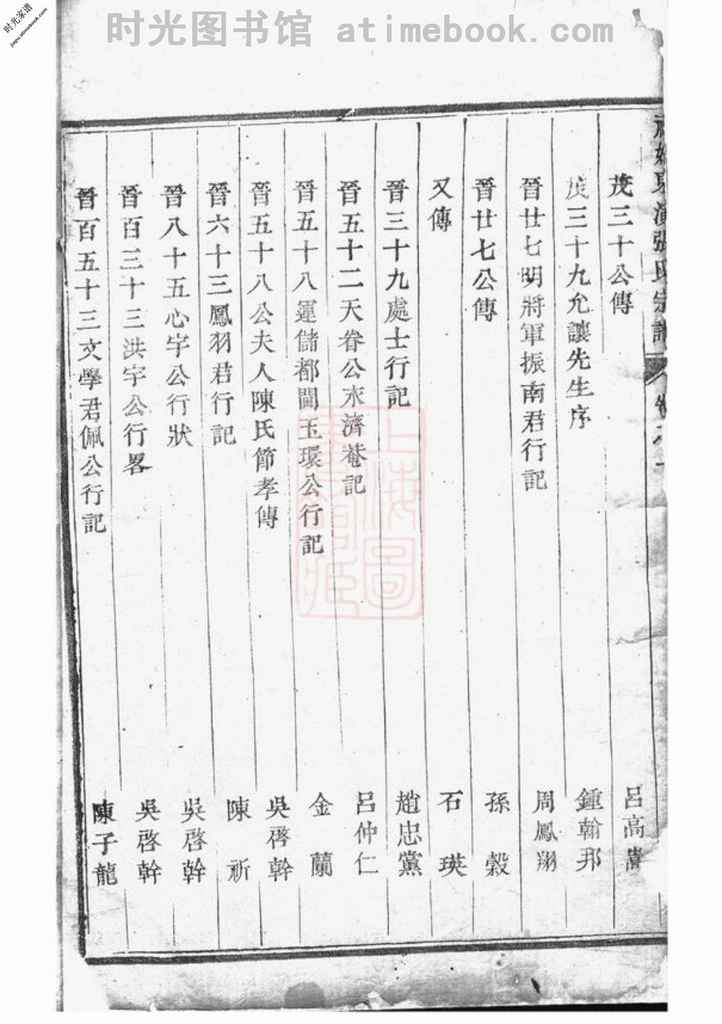 时光图书馆 atimebook.com
时光家谱
jiapu.atimebook.com
張氏宗譜
卷
茂三十公傳 呂高
茂三十九允讓先生序 鍾翰邦
晉廿七明將軍振南君行記 周鳳翔
晉廿七公傳 孫榖
又傳 石瑛
晉三十九處士行記 趙忠黨
晉五十二天眷公永濟菴記 呂仲仁
晉五十八運儲都閫玉環公行記 金蘭
晉五十八公夫人陳氏節孝傳 吳啓幹
晉六十三鳳羽君行記 陳祈
晉八十五心宇公行狀 吳啓幹
晉百三十三洪宇公行畧 吳啓幹
晉百五十三文學君佩公行記 陳子龍
上海圖書館藏